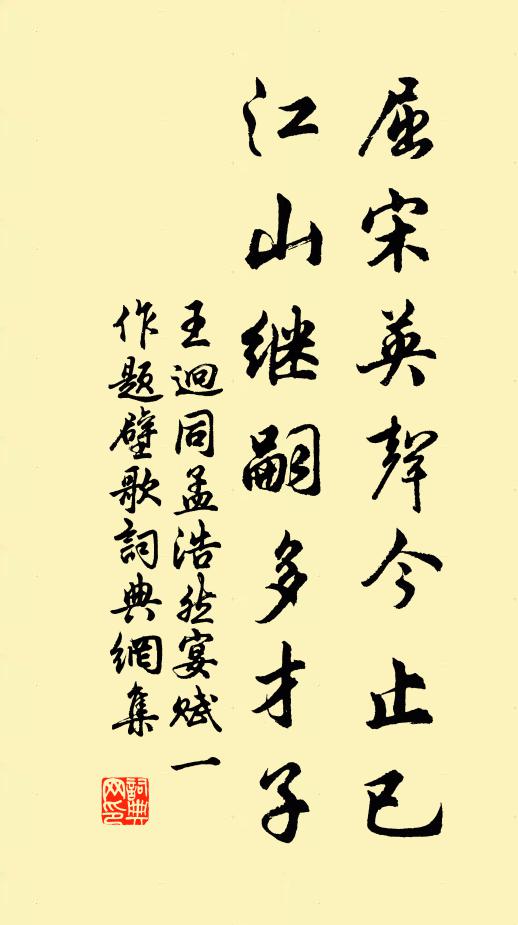 屈宋英聲今止已
江山继嗣多才子
王迥同孟浩然宴赋一
作题壁歌詞典網集
詞典
网印